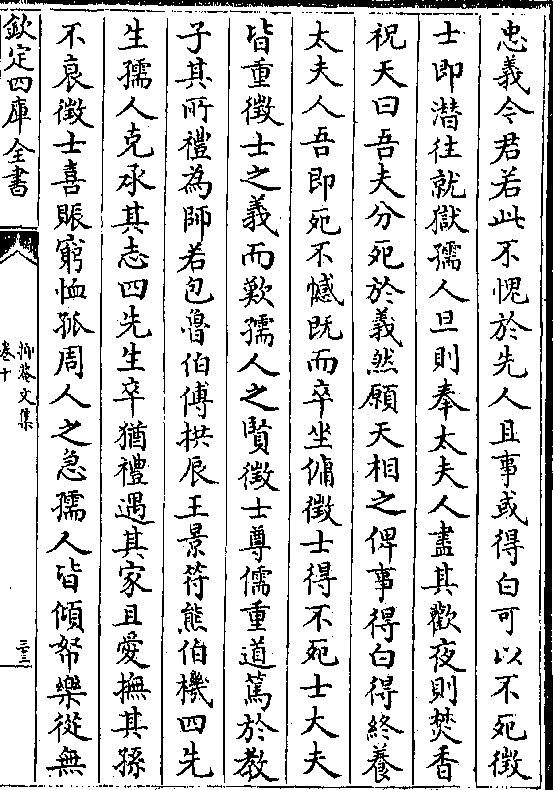 忠義令君若此不愧於先人且事或得白可以不死徵
士即潜往就獄孺人旦則奉太夫人盡其歡夜則焚香
祝天曰吾夫分死於義然願天相之俾事得白得終養
太夫人吾即死不憾既而卒坐傭徵士得不死士大夫
皆重徵士之義而歎孺人之賢徵士尊儒重道篤於教
子其所禮為師若包魯伯傅拱辰王景符熊伯機四先
生孺人克承其志四先生卒猶禮遇其家且愛撫其孫
不衰徵士喜賑窮恤孤周人之急孺人皆傾帑樂從無
欽定四庫全書
抑菴文集
卷十
三十三